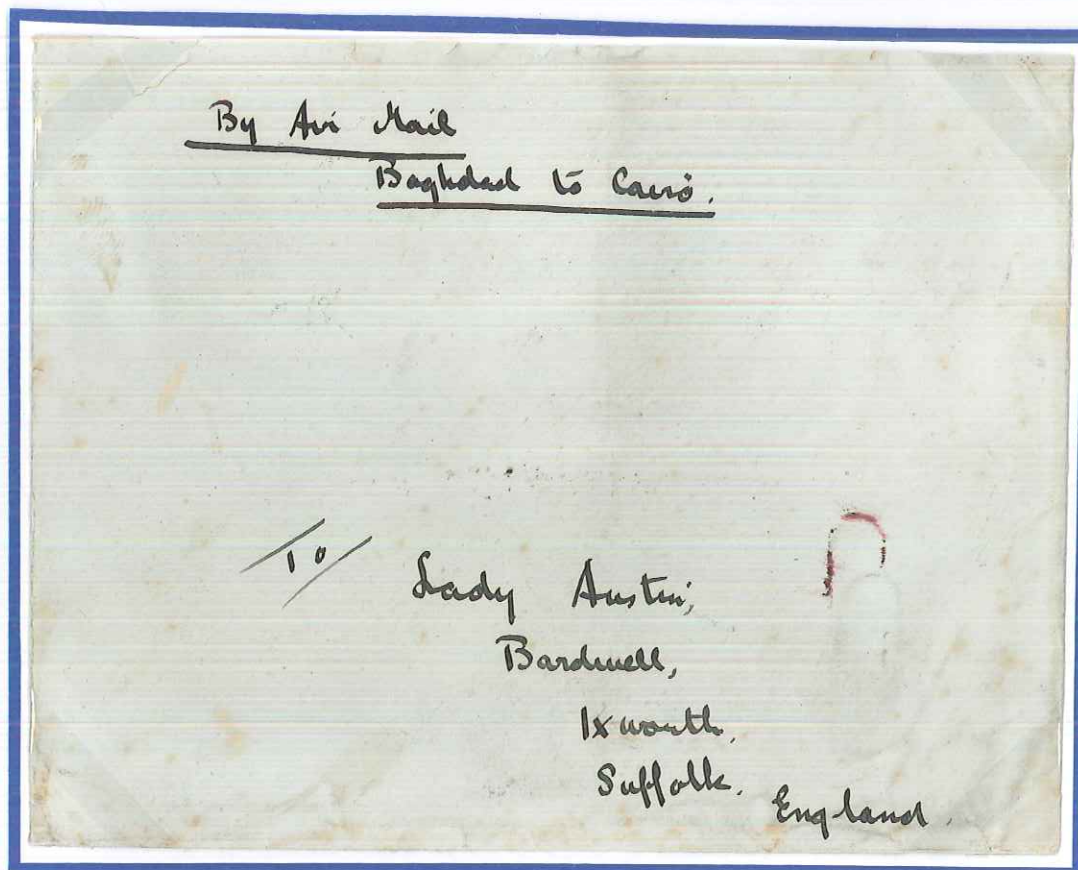 By Air Mail
Baghdad to Cairo.
To
Lady Austin,
Bardwell,
Ixworth,
Suffolk.
England.